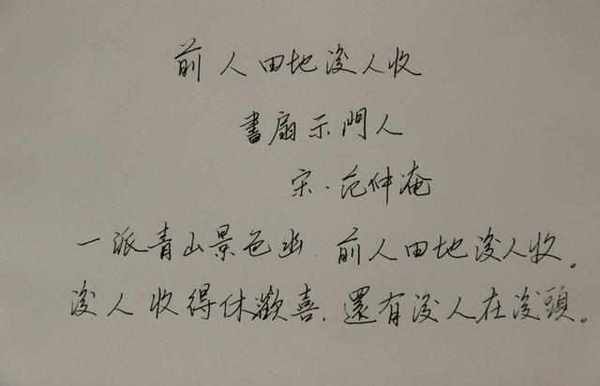 前人田地後人收
書扇示門人
宋·范仲淹
一派青山景色幽 前人田地後人收。
後人收得休歡喜,還有後人在後頭。